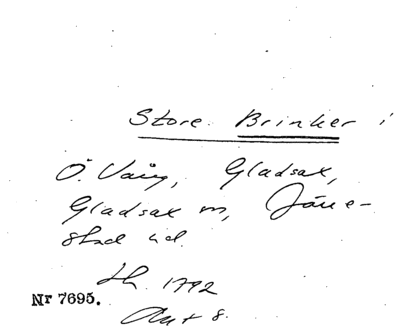 Store Brinker i
Ö. Vång, Gladsax,
Gladsax sn, Järre-
stad hd.
Sk. 1792
Nr 7695.
Akt 8.